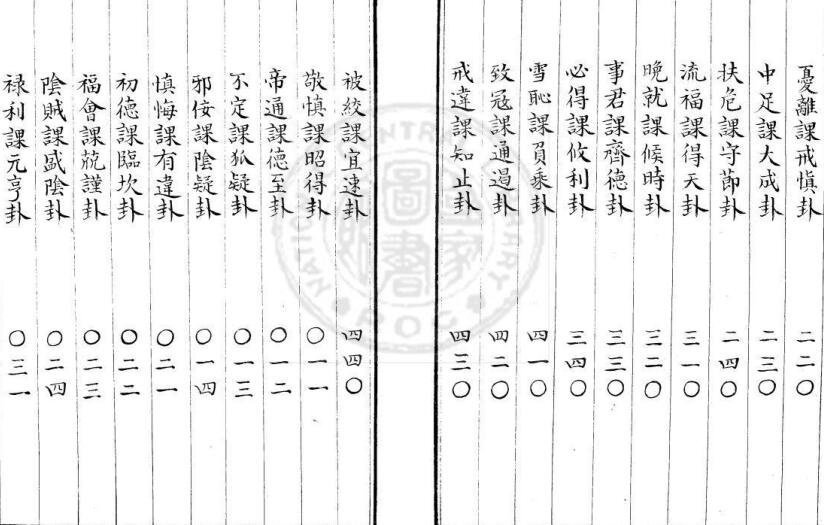 憂離課戒慎卦 二二〇
中足課大成卦 二三〇
扶危課守節卦 二四〇
流福課得天卦 三一〇
晚就課候時卦 三二〇
事君課齊德卦 三三〇
必得課攸利卦 三四〇
雪恥課負乘卦 四一〇
致寇課通過卦 四二〇
戒違課知止卦 四三〇
被絞課宜速卦 四四〇
敬慎課昭得卦 〇一一
帝通課德至卦 〇一二
不定課狐疑卦 〇一三
邪佞課陰疑卦 〇一四
慎悔課有違卦 〇二一
初德課臨坎卦 〇二二
福會課兢謹卦 〇二三
陰賊課盛陰卦 〇二四
祿利課元亨卦 〇三一